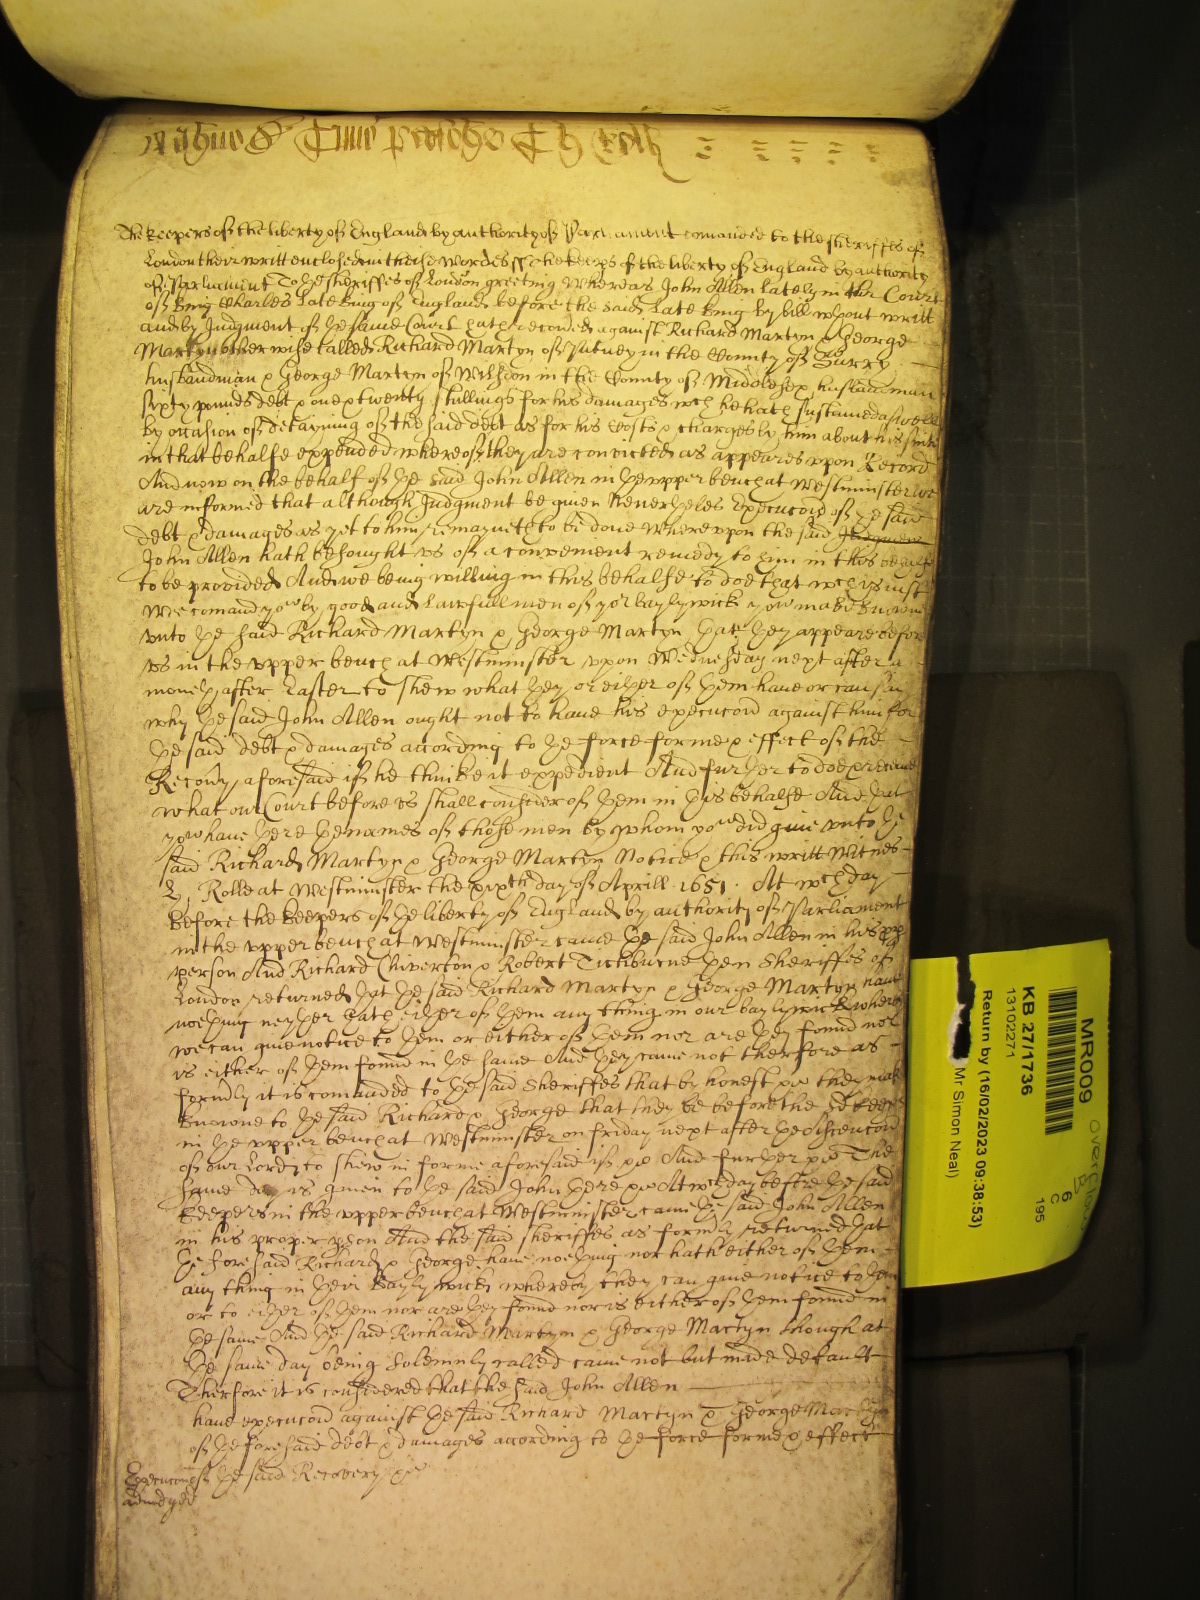 The keepers of the liberty of England by authority of Parliament comanded to the sheriffes of
London their writt enclosed in theise wordes ss The keeps of the liberty of England by authority
of Parliament To ye sheriffes of London greeting Whereas John Allen lately in the Court
of King Charles late King of England before the said late King by bill wthout writt
and by Judgment of ye same Court hath recovered against Richard Martyn & George
Martyn otherwise called Richard Martyn of Putney in the County of Surry
husbandman & George Martyn of Wilsdon in the County of Middlesex husbandman
sixty pounds debt & one & twenty shillings for his damages wch he hath sustained aswell
by occasion of detayning of the said debt as for his Costs & charges by him about his suite
in that behalfe expended whereof they are convicted as appeares upon Record
And now on the behalf of ye said John Allen in ye upper bench at Westminster we
are informed that although Judgment be given Neverþeles Execucoñ of ye said
debt & damages as yet to him remayneth to be done Whereupon the said
John Allen hath besought us of a convenient remedy to him in this behalfe
to be provided And we being willing in this behalfe to doe that wch is just
Wee comand you by good and lawfull men of yor baylywick you make knowne
unto ye said Richard Martyn & George Martyn yat yey appeare before
us in the upper bench at Westminster upon Wednesday next after a
moneth after Easter to shew what yey or eiyer of yem have or can say
why ye said John Allen ought not to have his execucoñ against him for
ye said debt & damages according to ye force forme & effect of the
Recovy aforesaid if he thinke it expedient And furyer to doe & receive
what our Court before us shall consider of yem in yis behalfe And yat
you have yere ye names of those men by whom you did give unto ye
said Richard Martyn & George Martyn Notice & this writt Witnes
H Rolle at Westminster the xixth day of Aprill 1651. At wch day
before the keepers of ye liberty of England by authority of Parliament
in the upper bench at Westminster came ye said John Allen in his pp
person And Richard Chiverton & Robert Tichburne yen Sheriffes of
London returned yat ye said Richard Martyn & George Martyn have
noeyng neyyer hath eiyer of yem any thing in our baylywick whereby
we can give notice to yem or either of yem nor are yey found nor
is either of yem found in ye same And yey came not therfore as
formly it is comanded to ye said Sheriffes that by honest &c they make
knowne to ye said Richard & George that they be before the sd keeps
in ye upper bench at Westminster on friday next after ye Ascencon
of our Lord to shew in forme aforesaid if &c And furyer &c The
same day is given to ye said John yere &c At wch day before ye said
keepers in the upper bench at Westminster came ye said John Allen
in his proper pson And the said sheriffes as formly returned yat
ye foresaid Richard & George have noeyng nor hath either of yem
any thing in yeir Baylywick whereby they can give notice to yem
or to eiyer of yem nor are yey found nor is either of yem found in
ye same And ye said Richard Martyn & George Martyn though at
ye same day being solemnly called came not but made default
Therfore it is considered that the said John Allen
have execucoñ against ye said Richard Martyn & George Martyn
of ye foresaid debt & damages according to ye force forme & effect
of ye said Recovery &c
Execucon
adiudged
MR009
KB 27/1736
13102271
Return by (16/02/2023 09:38:53)
Mr Simon Neal)
6
C
195